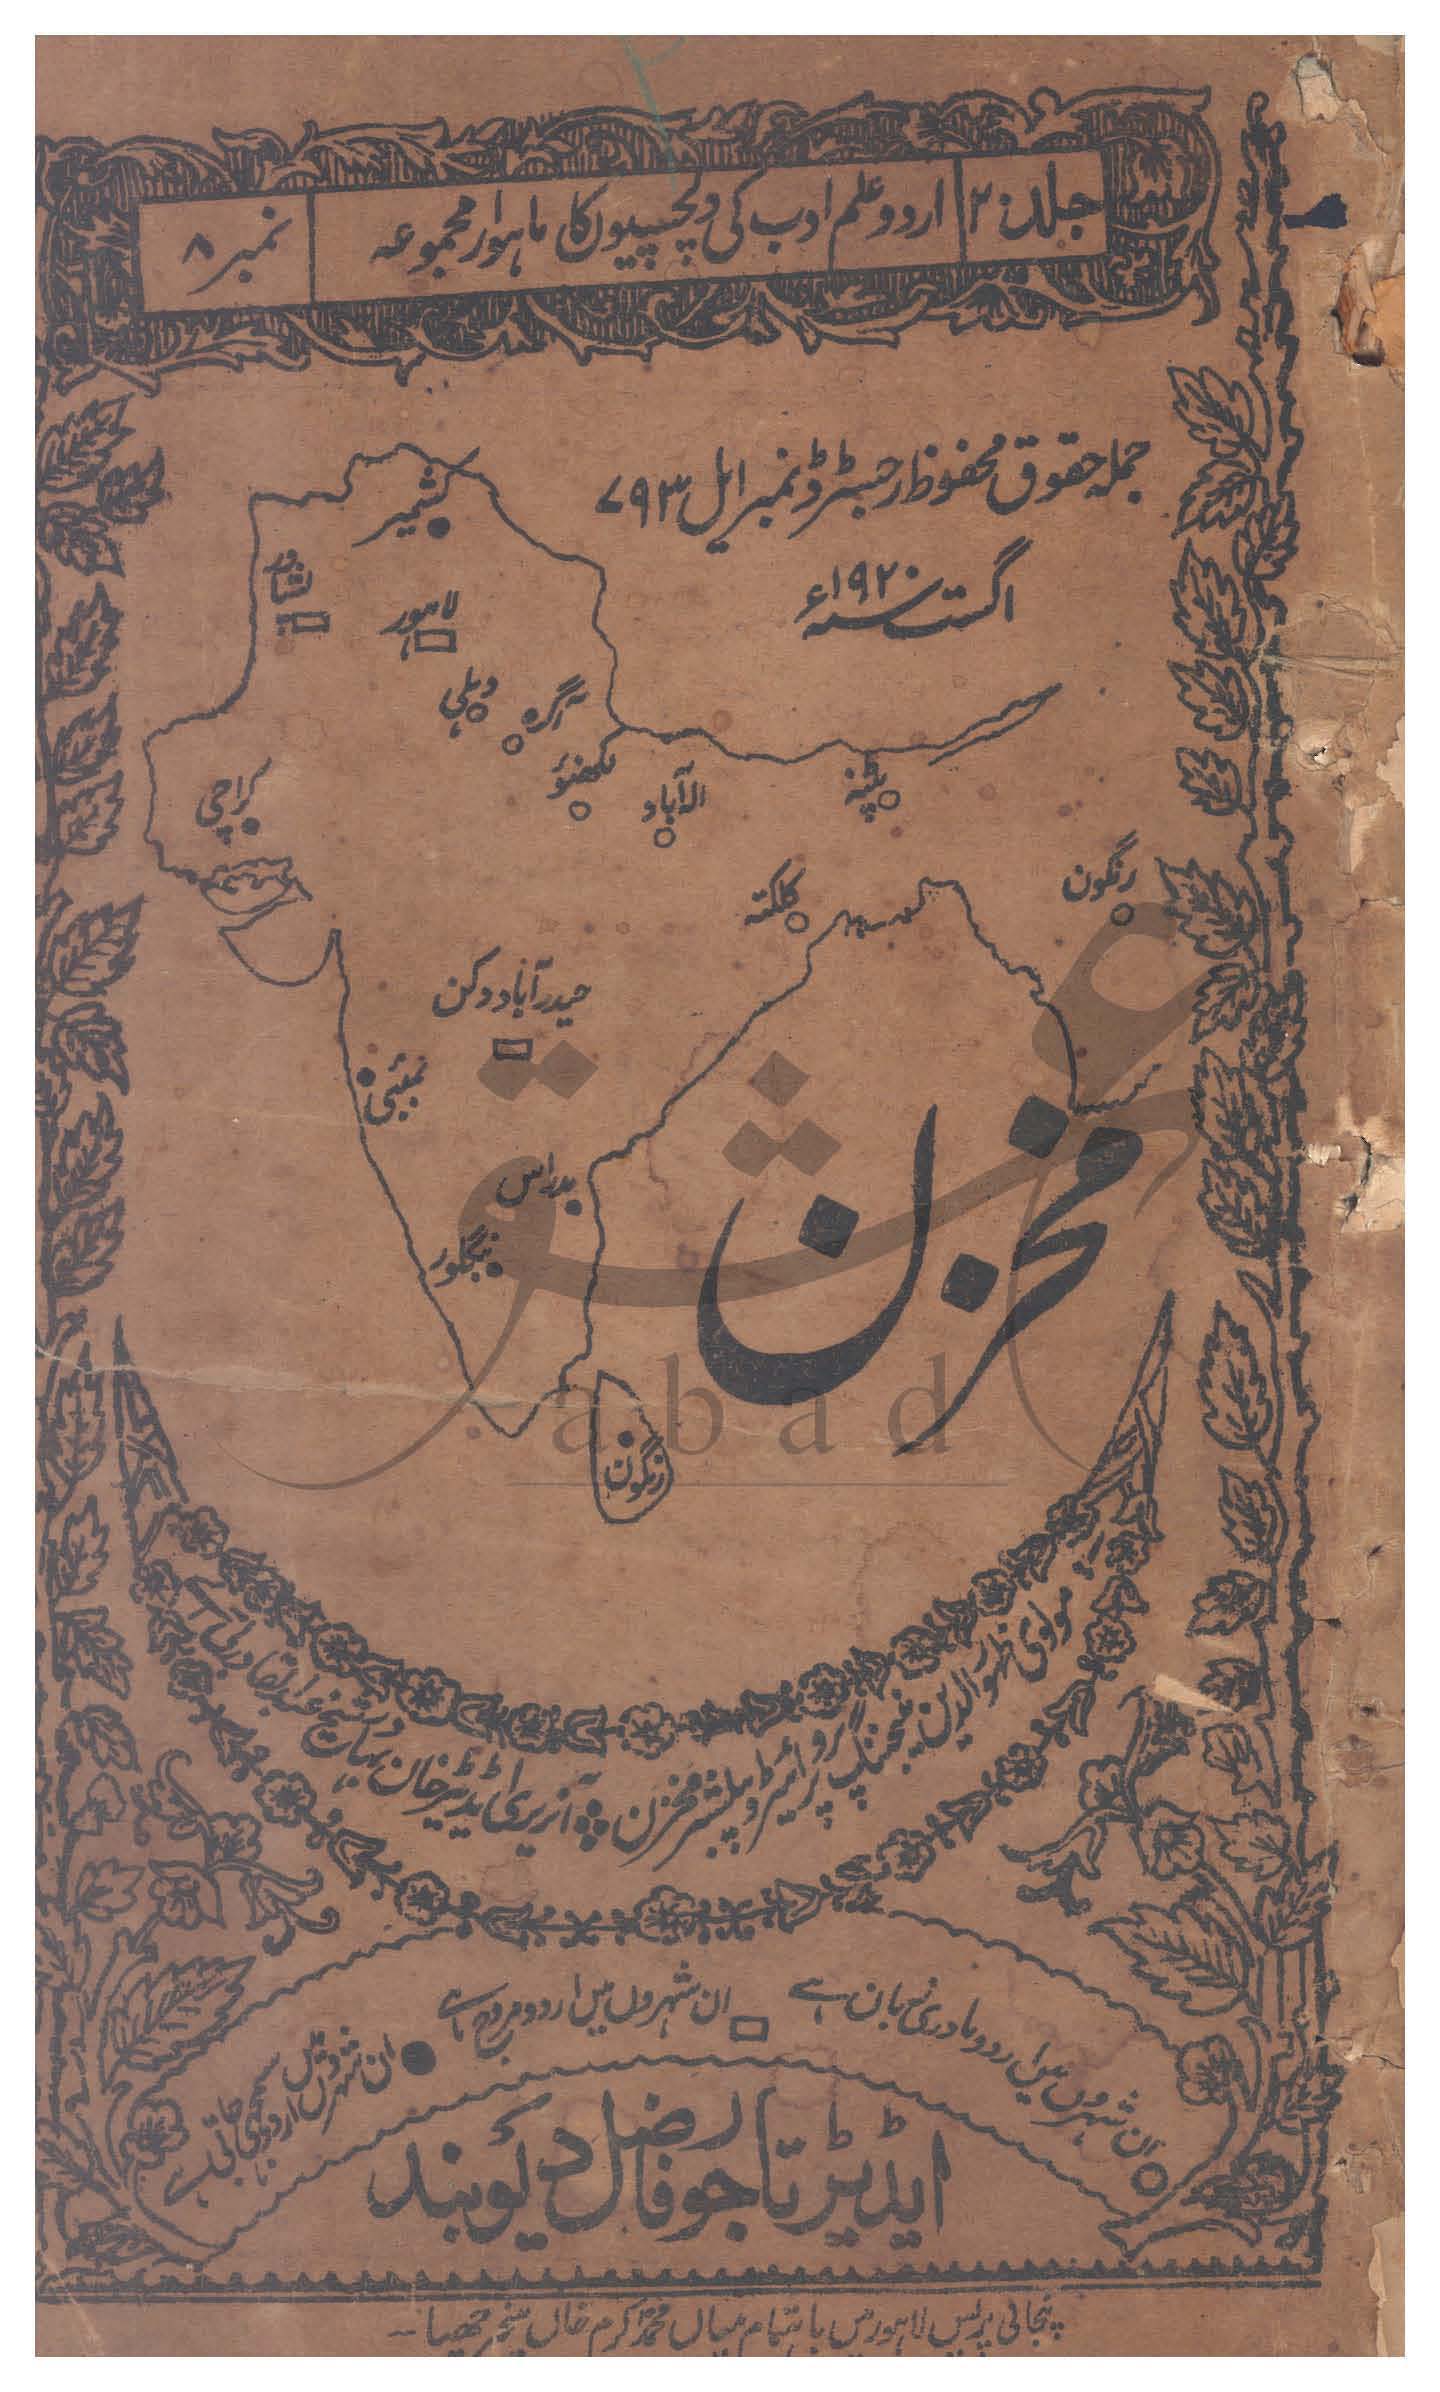 جلد ۲۰
اردو علم ادب کی دلچسپیوں کا ماہوار مجموعہ
نمبر ۸
جملہ حقوق محفوظ رجسٹرڈ نمبر ایل ۷۹۳
اگست سنہ ۱۹۲۰ء
کشمیر
پشاور
لاہور
دہلی
آگرہ
لکھنؤ
الہ آباد
پٹنہ
کراچی
کلکتہ
رنگون
حیدرآباد دکن
بمبئی
مدراس
بنگلور
مخزن
عشق
abad
رنگون
مولوی ظہور الدین منیجنگ پروپرائیٹر و پبلشر مخزن
آنریری ایڈیٹر خان بہادر شیخ عبدالقادر بی اے
ان شہروں میں اردو مادری زبان ہے
ان شہروں میں اردو مروج ہے
ان شہروں میں اردو سمجھی جاتی ہے
ایڈیٹر تاجور فاضل دیوبند
پنجابی پریس لاہور میں باہتمام میاں محمد اکرم خاں منیجر چھپا